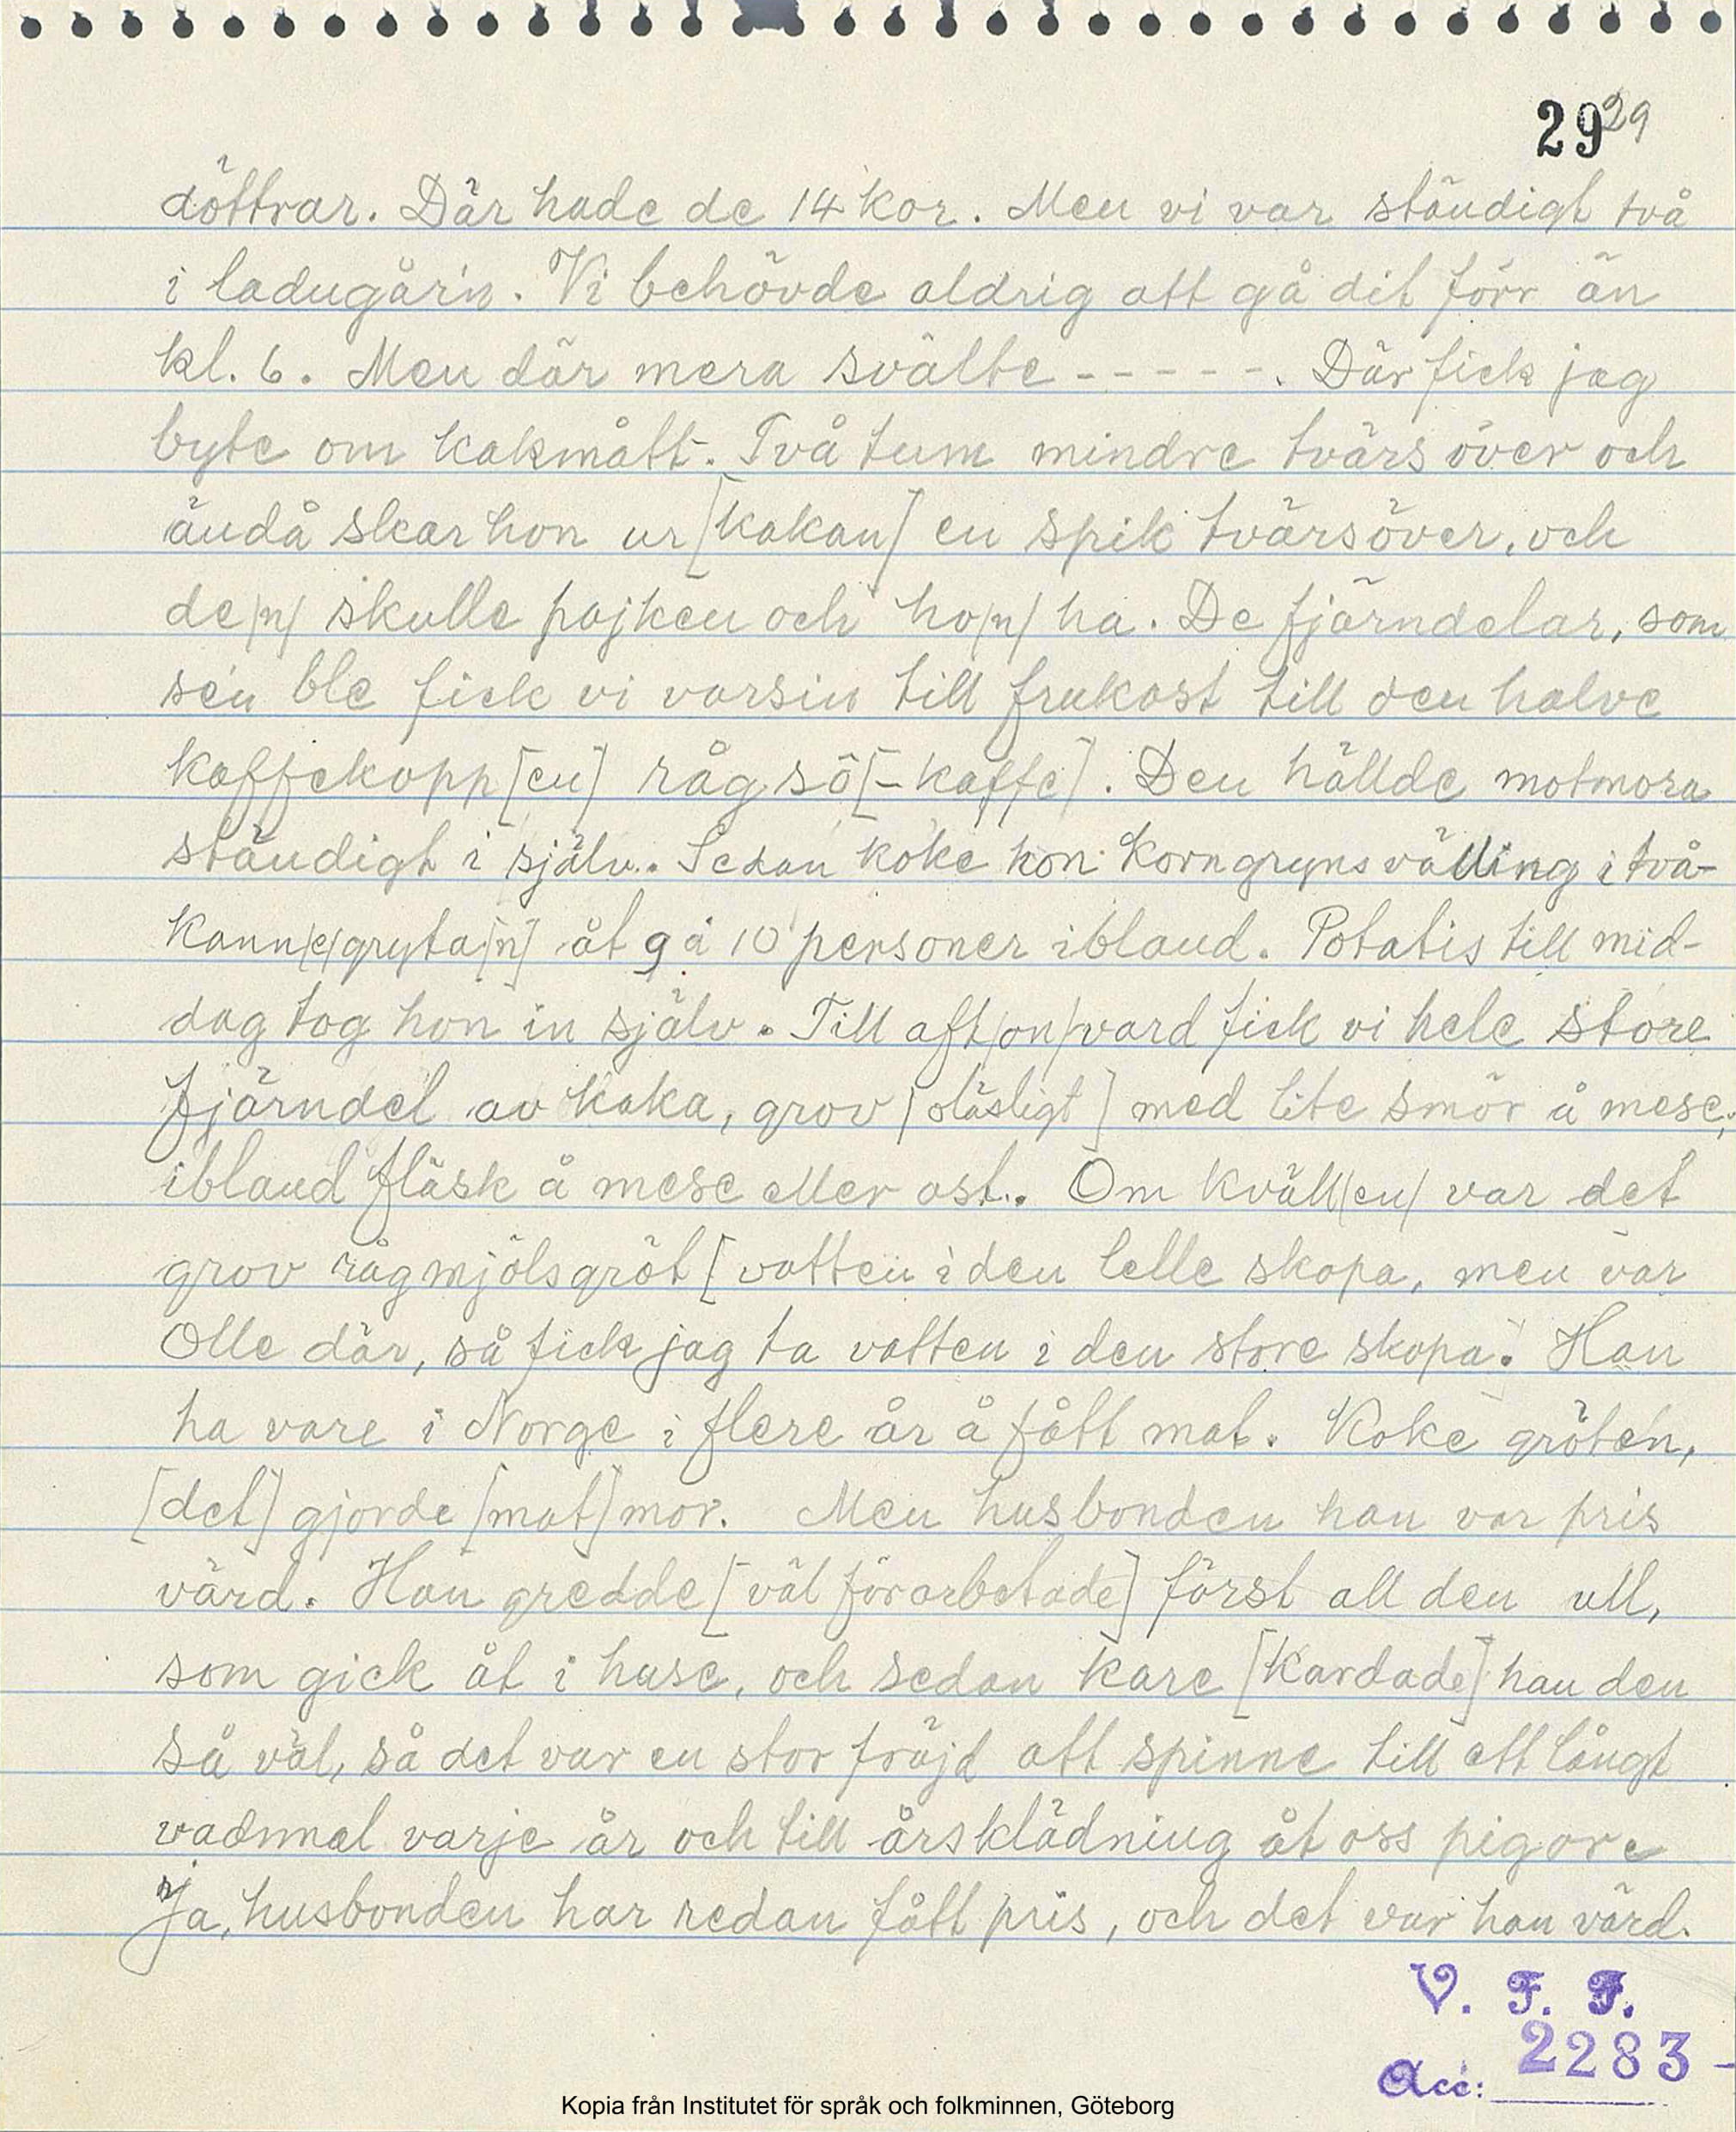 29 29
döttrar. Där hade de 14 kor. Men vi var ständigt två
i ladugår'n. Vi behövde aldrig att gå dit förr än
kl. 6. Men där mera svälte - - - - -. Där fick jag
byte om kakmått. Två tum mindre tvärs över och
ändå skar hon ur [kakan] en spik tvärsöver, och
de/n/ skulle pojken och ho/n/ ha. De fjärndelar, som
se'n ble fick vi varsin till frukost till den halve
kaffekopp[en] rågsö[-kaffe]. Den hällde motmora
ständigt i själv. Sedan koke hon korngrynsvälling i två-
kann/e/gryta[n] åt 9 à 10 personer ibland. Potatis till mid-
dag tog hon in själv. Till aft/on/vard fick vi hele store
fjärndel av kaka, grov [oläsligt] med lite smör å mese,
ibland fläsk å mese eller ost. Om kväll/en/ var det
grov rågmjölsgröt [vatten i den lelle skopa, men var
Olle där, så fick jag ta vatten i den store skopa. Han
ha vare i Norge i flere år å fått mat. Koke gröten,
[det] gjorde [mat]mor. Men husbonden han var pris
värd. Han gredde [väl förarbetade] först all den ull,
som gick åt i huse, och sedan kare [kardade] han den
så väl, så det var en stor fröjd att spinne till ett långt
vadmal varje år och till årsklädning åt oss pigore
Ja, husbonden har redan fått pris, och det var han värd.
V. F. F.
2283 -
Acc:
Kopia från Institutet för språk och folkminnen, Göteborg